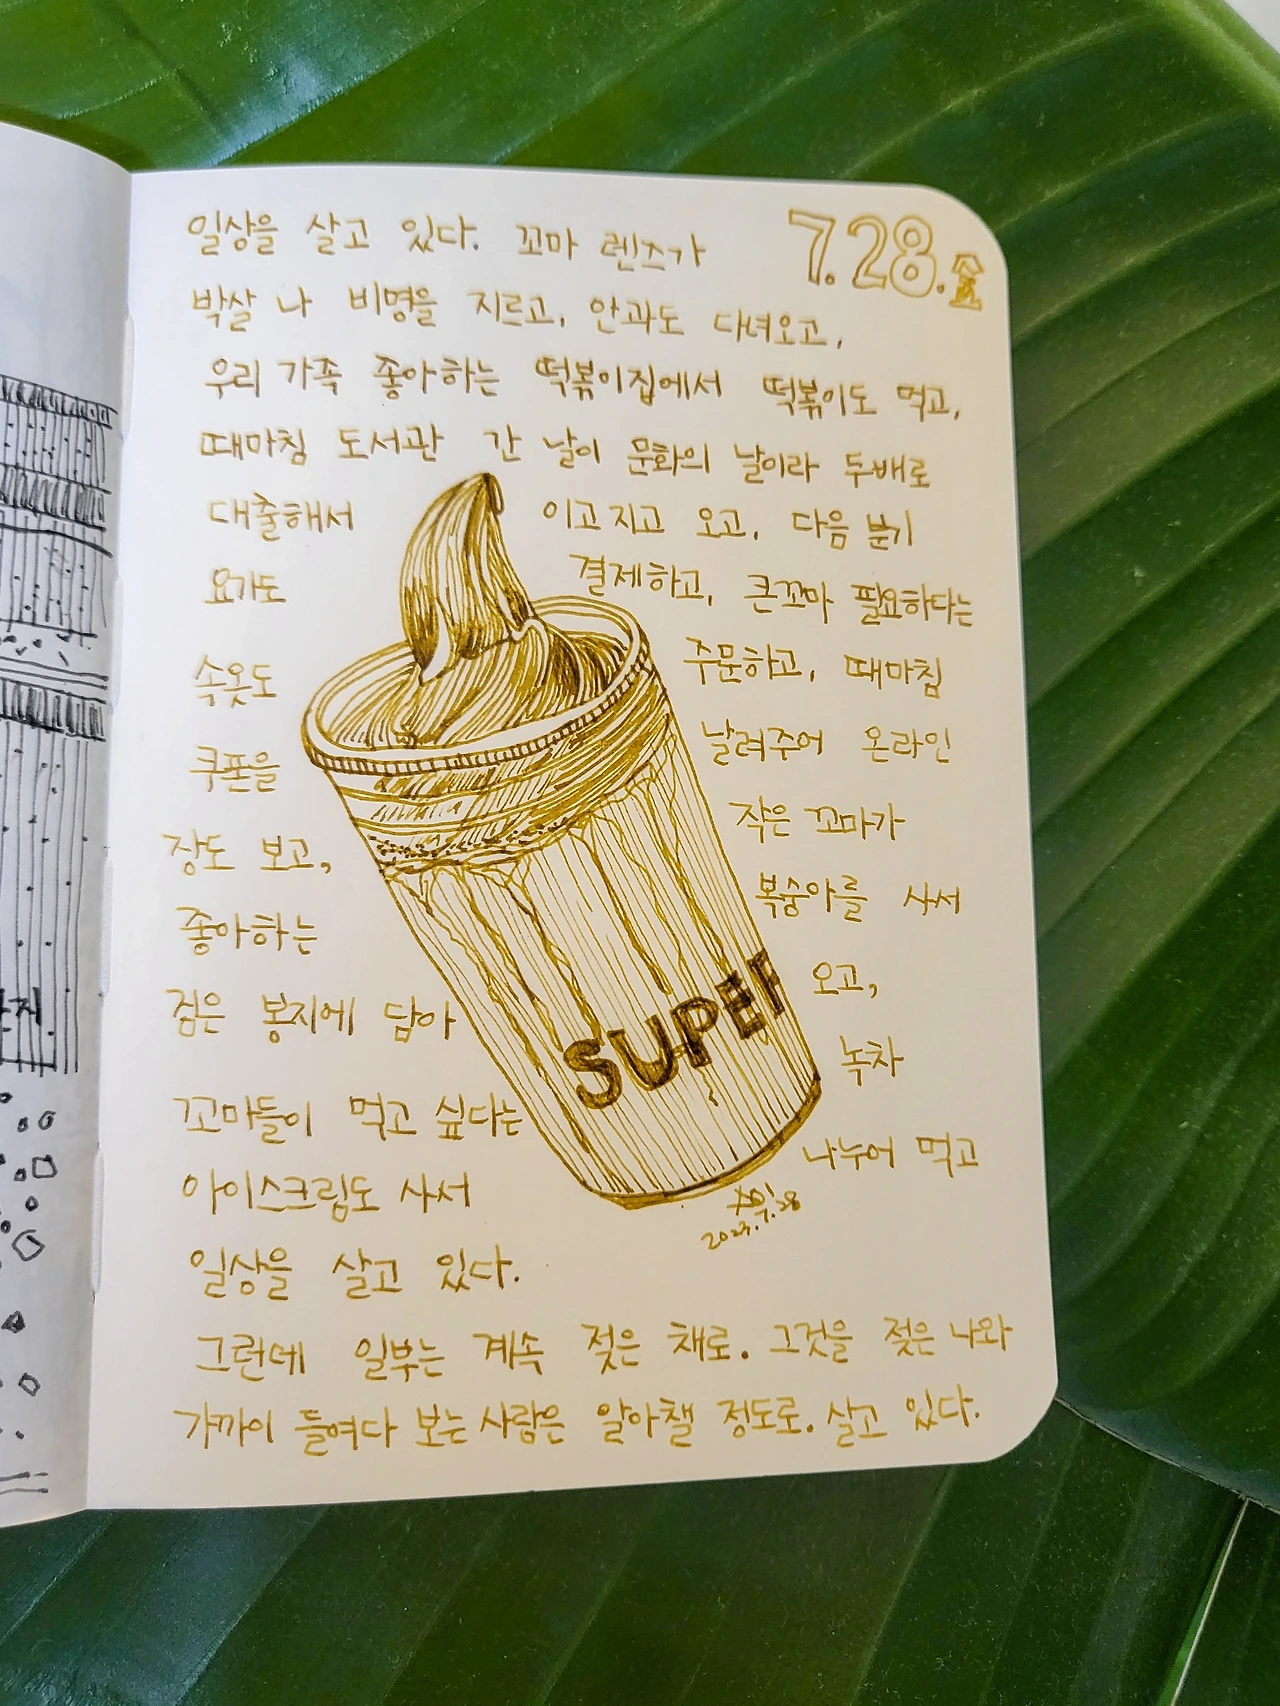 7.28.金
일상을 살고 있다. 꼬마 렌즈가
박살 나 비명을 지르고, 안과도 다녀오고,
우리 가족 좋아하는 떡볶이집에서 떡볶이도 먹고,
때마침 도서관 간 날이 문화의 날이라 두배로
대출해서 이고지고 오고, 다음 분기
요가도 결제하고, 큰꼬마 필요하다는
속옷도 주문하고, 때마침
쿠폰을 날려주어 온라인
장도 보고, 작은 꼬마가
좋아하는 복숭아를 사서
검은 봉지에 담아 오고,
녹차
꼬마들이 먹고 싶다는
아이스크림도 사서 나누어 먹고
SUPER
2023.7.28
일상을 살고 있다.
그런데 일부는 계속 젖은 채로. 그것을 젖은 나와
가까이 들여다 보는 사람은 알아챌 정도로. 살고 있다.